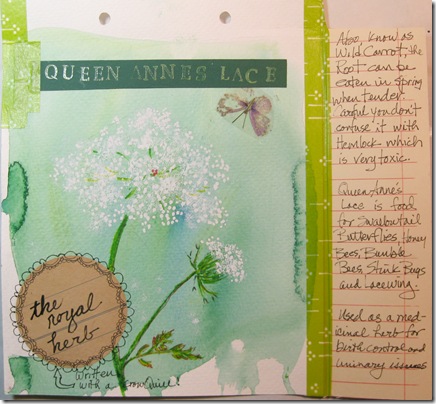 QUEEN ANNES LACE
the
royal
herb
written
with a crow quill.
Also, know as
Wild Carrot, the
Root can be
eaten in Spring
when tender.
careful you don't
confuse it with
Hemlock - which
is very toxic.
Queen Anne's
Lace is food
for Swallowtail
Butterflies, Honey
Bees, Bumble
Bees, Stink Bugs
and Lacewing.
Used as a med-
icinal herb for
birth control and
urinary issues